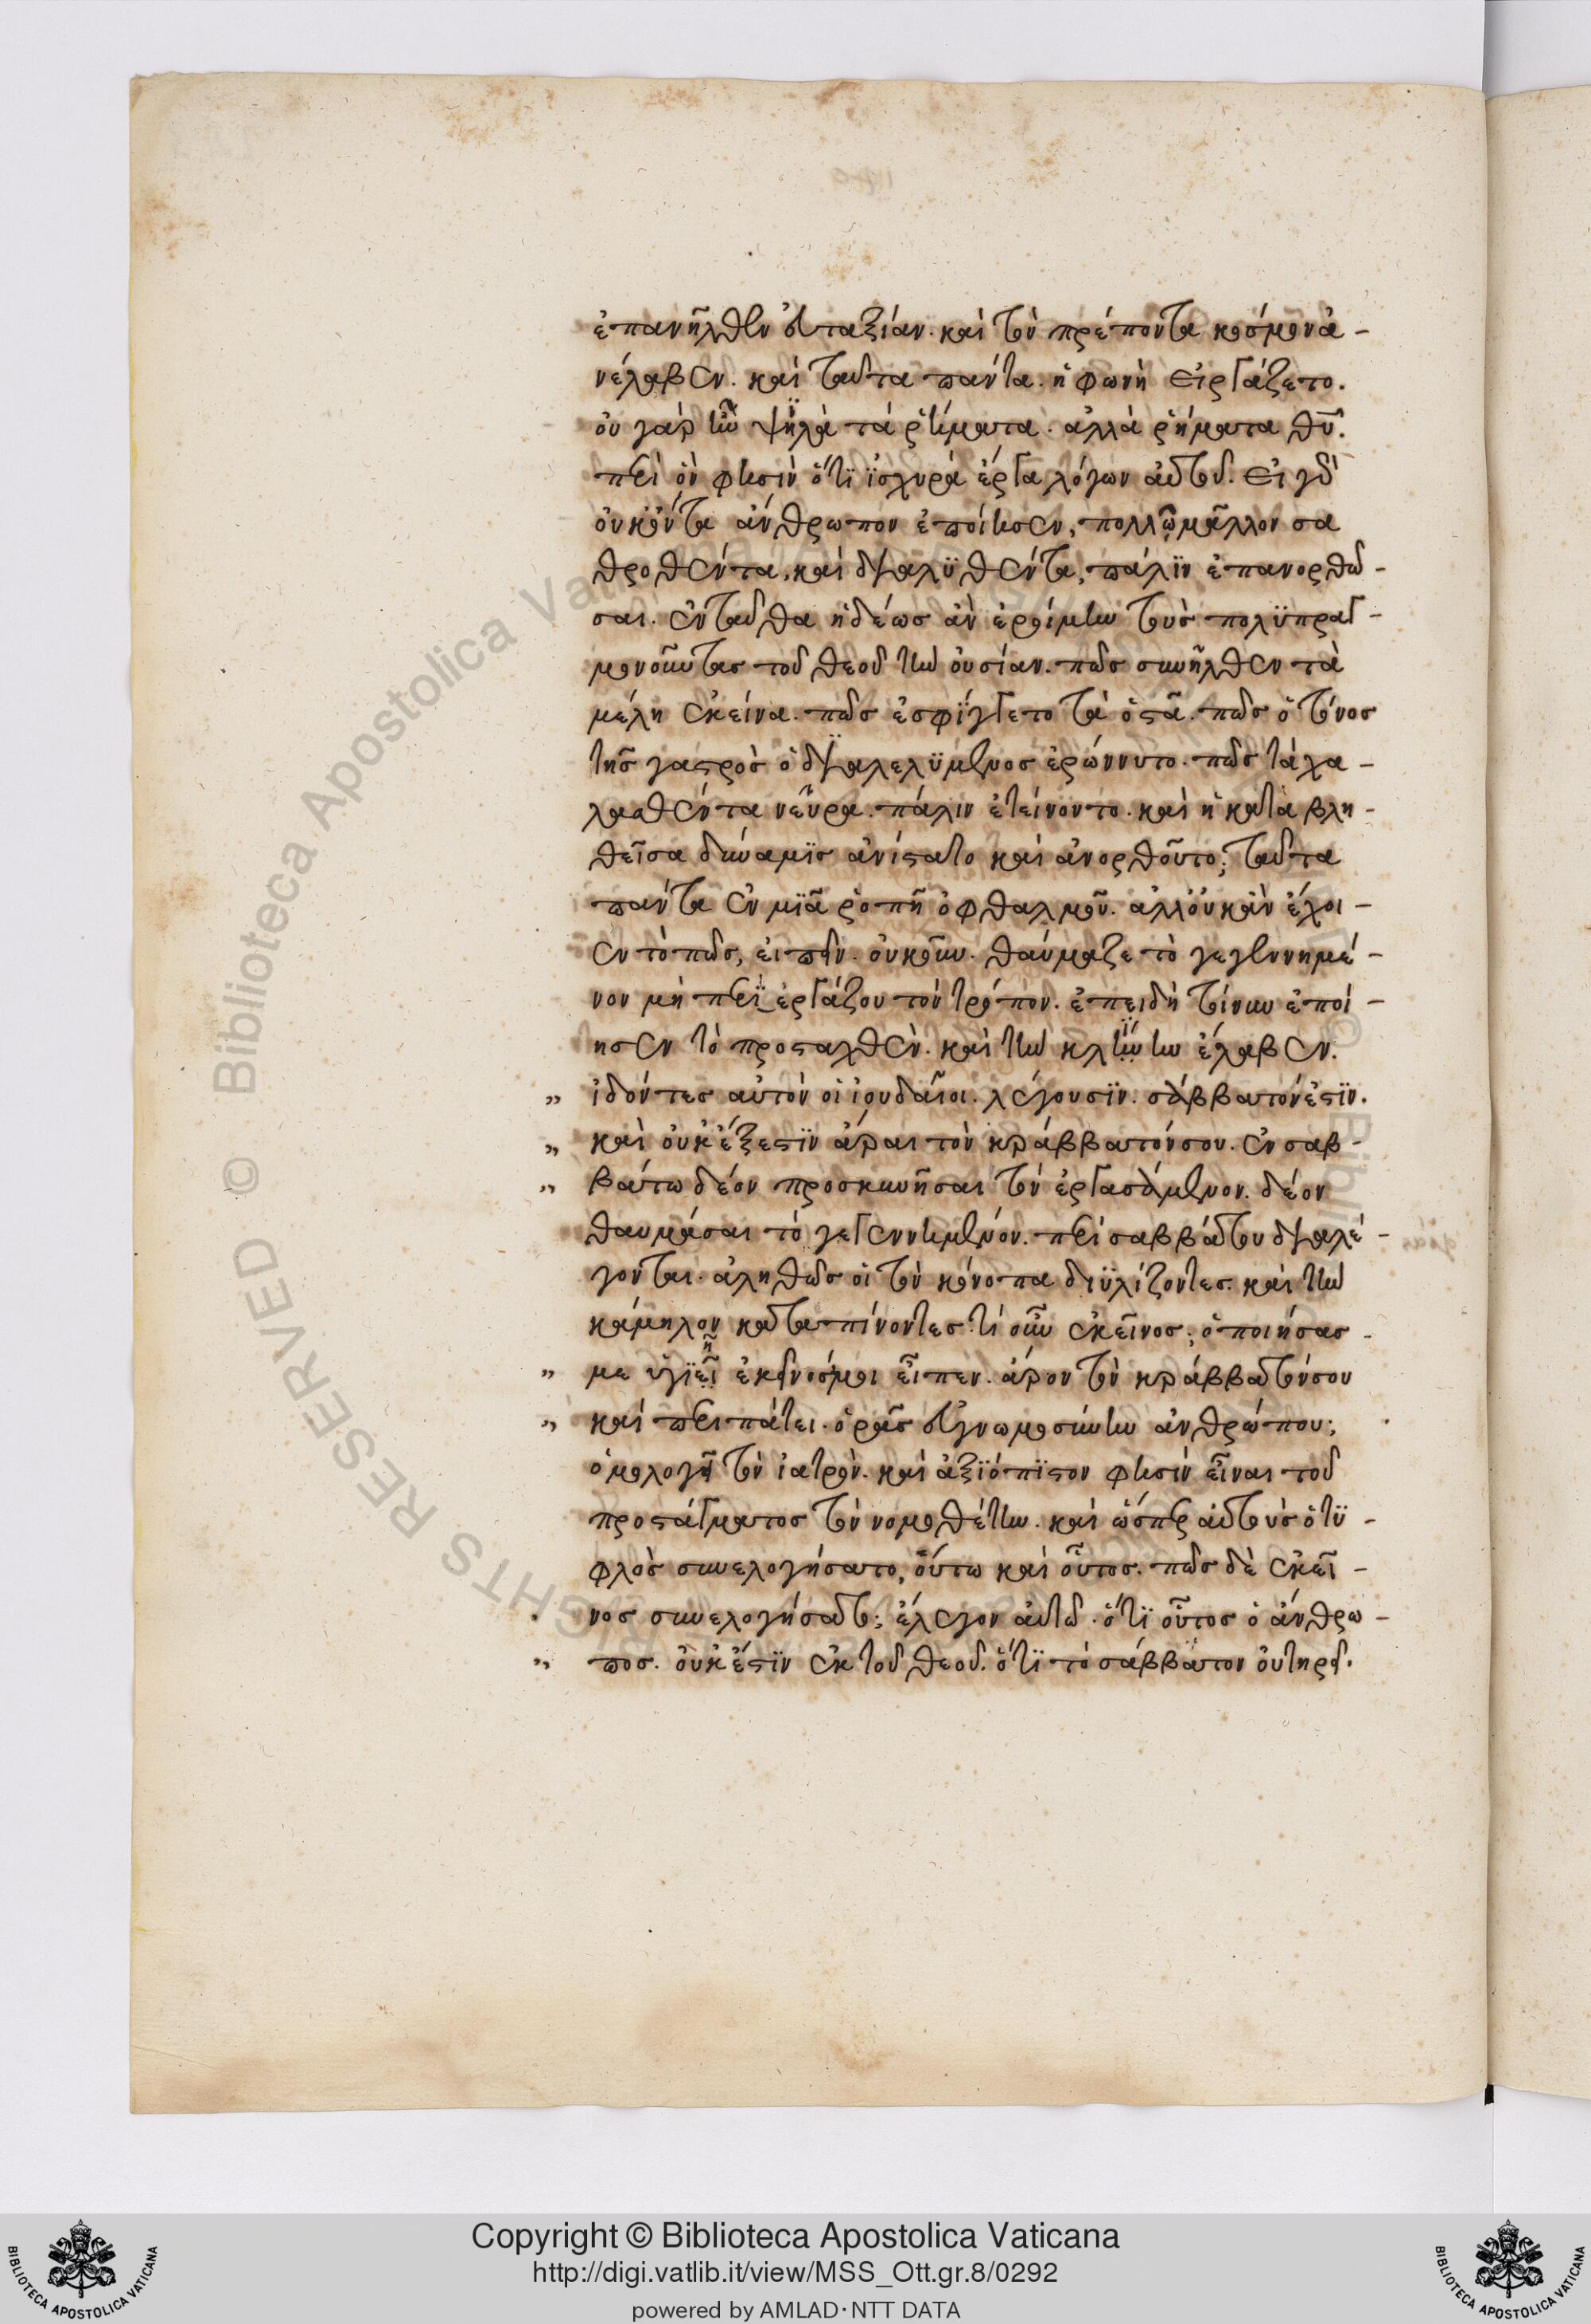 ἐπανῆλθεν εὐταξίαν. καὶ τὸν πρέποντα κόσμον ἀ-
νέλαβεν. καὶ ταῦτα πάντα. ἡ φωνὴ εἰργάζετο.
οὐ γὰρ ἦν ψηλὰ τὰ ῥήματα. ἀλλὰ ῥήματα θῦ.
περὶ ὃν φησὶν ὅτϊ ϊσχυρὰ ἔργα λόγων αὐτοῦ. Εἰ γὰρ
οὐκὄντα ἄνθρωπον ἐποίησεν, πολλῶμᾶλλον σα
θρωθέντα, καὶ διαλϋθέντα, πάλϊν ἐπανορθῶ-
σαι. ἐνταῦθα ἡδέως ἂν ἐροίμην τοὺς πολϋπραγ-
μονοῦντας τοῦ θεοῦ τὴν οὐσίαν. πῶς συνῆλθεν τὰ
μέλη ἐκεῖνα. πῶς ἐσφϊγγετο τὰ ὀστᾶ. πῶς ὁ τόνος
τῆς γαστρὸς ὁ διαλελϋμένος ἐρώννυτο. πῶς τὰ χα-
λασθέντα νεῦρα. πάλιν ἐτείνοντο. καὶ ἡ καταβλη-
θεῖσα δύναμϊς ἀνίστατο καὶ ἀνορθοῦτο; ταῦτα
πάντα ἐν μϊᾶ ῥοπῆ ὀφθαλμοῦ. ἀλλὀυκἂν ἔχοι-
εν τὸ πῶς, εἰπεῖν. οὐκοῦν. θαύμαζε τὸ γεγεννημέ-
νον μὴ περϊεργάζου τὸν τρόπον. ἐπειδὴ τοίνυν ἐποί-
ησεν τὸ προσταχθὲν. καὶ τὴν κλίνην ἔλαβεν.
„ ἰδόντες αὐτὸν οἱ ἰουδαῖοι. λέγουσϊν. σάββατόνἐστϊν.
„ καὶ οὐκἔξεστϊν ἆραι τὸν κράββατόνσου. ἐν σαβ-
„ βάτω δέον προσκυνῆσαι τὸν ἐργασάμενον. δέον
θαυμάσαι τὸ γεγεννημενόν. περὶ σαββάτου διαλέ-
γονται. ἀληθῶς οἱ τὸν κώνοπα διϋλίζοντες. καὶ τὴν
κάμηλον καταπίνοντες. τί οὖν ἐκεῖνος; ὁ ποιήσας
„ με ὑγϊεῖ ἐκεῖνοσμοι εἶπεν. ἆρον τὸν κράββατόνσου
„ καὶ περιπάτει. ὁρᾶς εὐγνωμοσύνην ἀνθρώπου;
ὁμολογεῖ τὸν ἰατρὸν. καὶ ἀξϊόπϊστον φησὶν εἶναι τοῦ
προστάγματος τὸν νομοθέτην. καὶ ὥσπερ αὐτοὺς ὁ τϋ-
φλὸς συνελογήσατο, οὕτω καὶ οὗτος. πῶς δὲ ἐκεῖ-
νος συνελογήσατο; ἔλεγον αὐτῶ. ὅτϊ οὗτος ὁ ἄνθρω-
„ πος. οὐκἔστϊν ἐκ τοῦ θεοῦ. ὅτϊ τὸ σάββατον οὐ τηρεῖ.
Copyright © Biblioteca Apostolica Vaticana
http://digi.vatlib.it/view/MSS_Ott.gr.8/0292
powered by AMLAD·NTT DATA